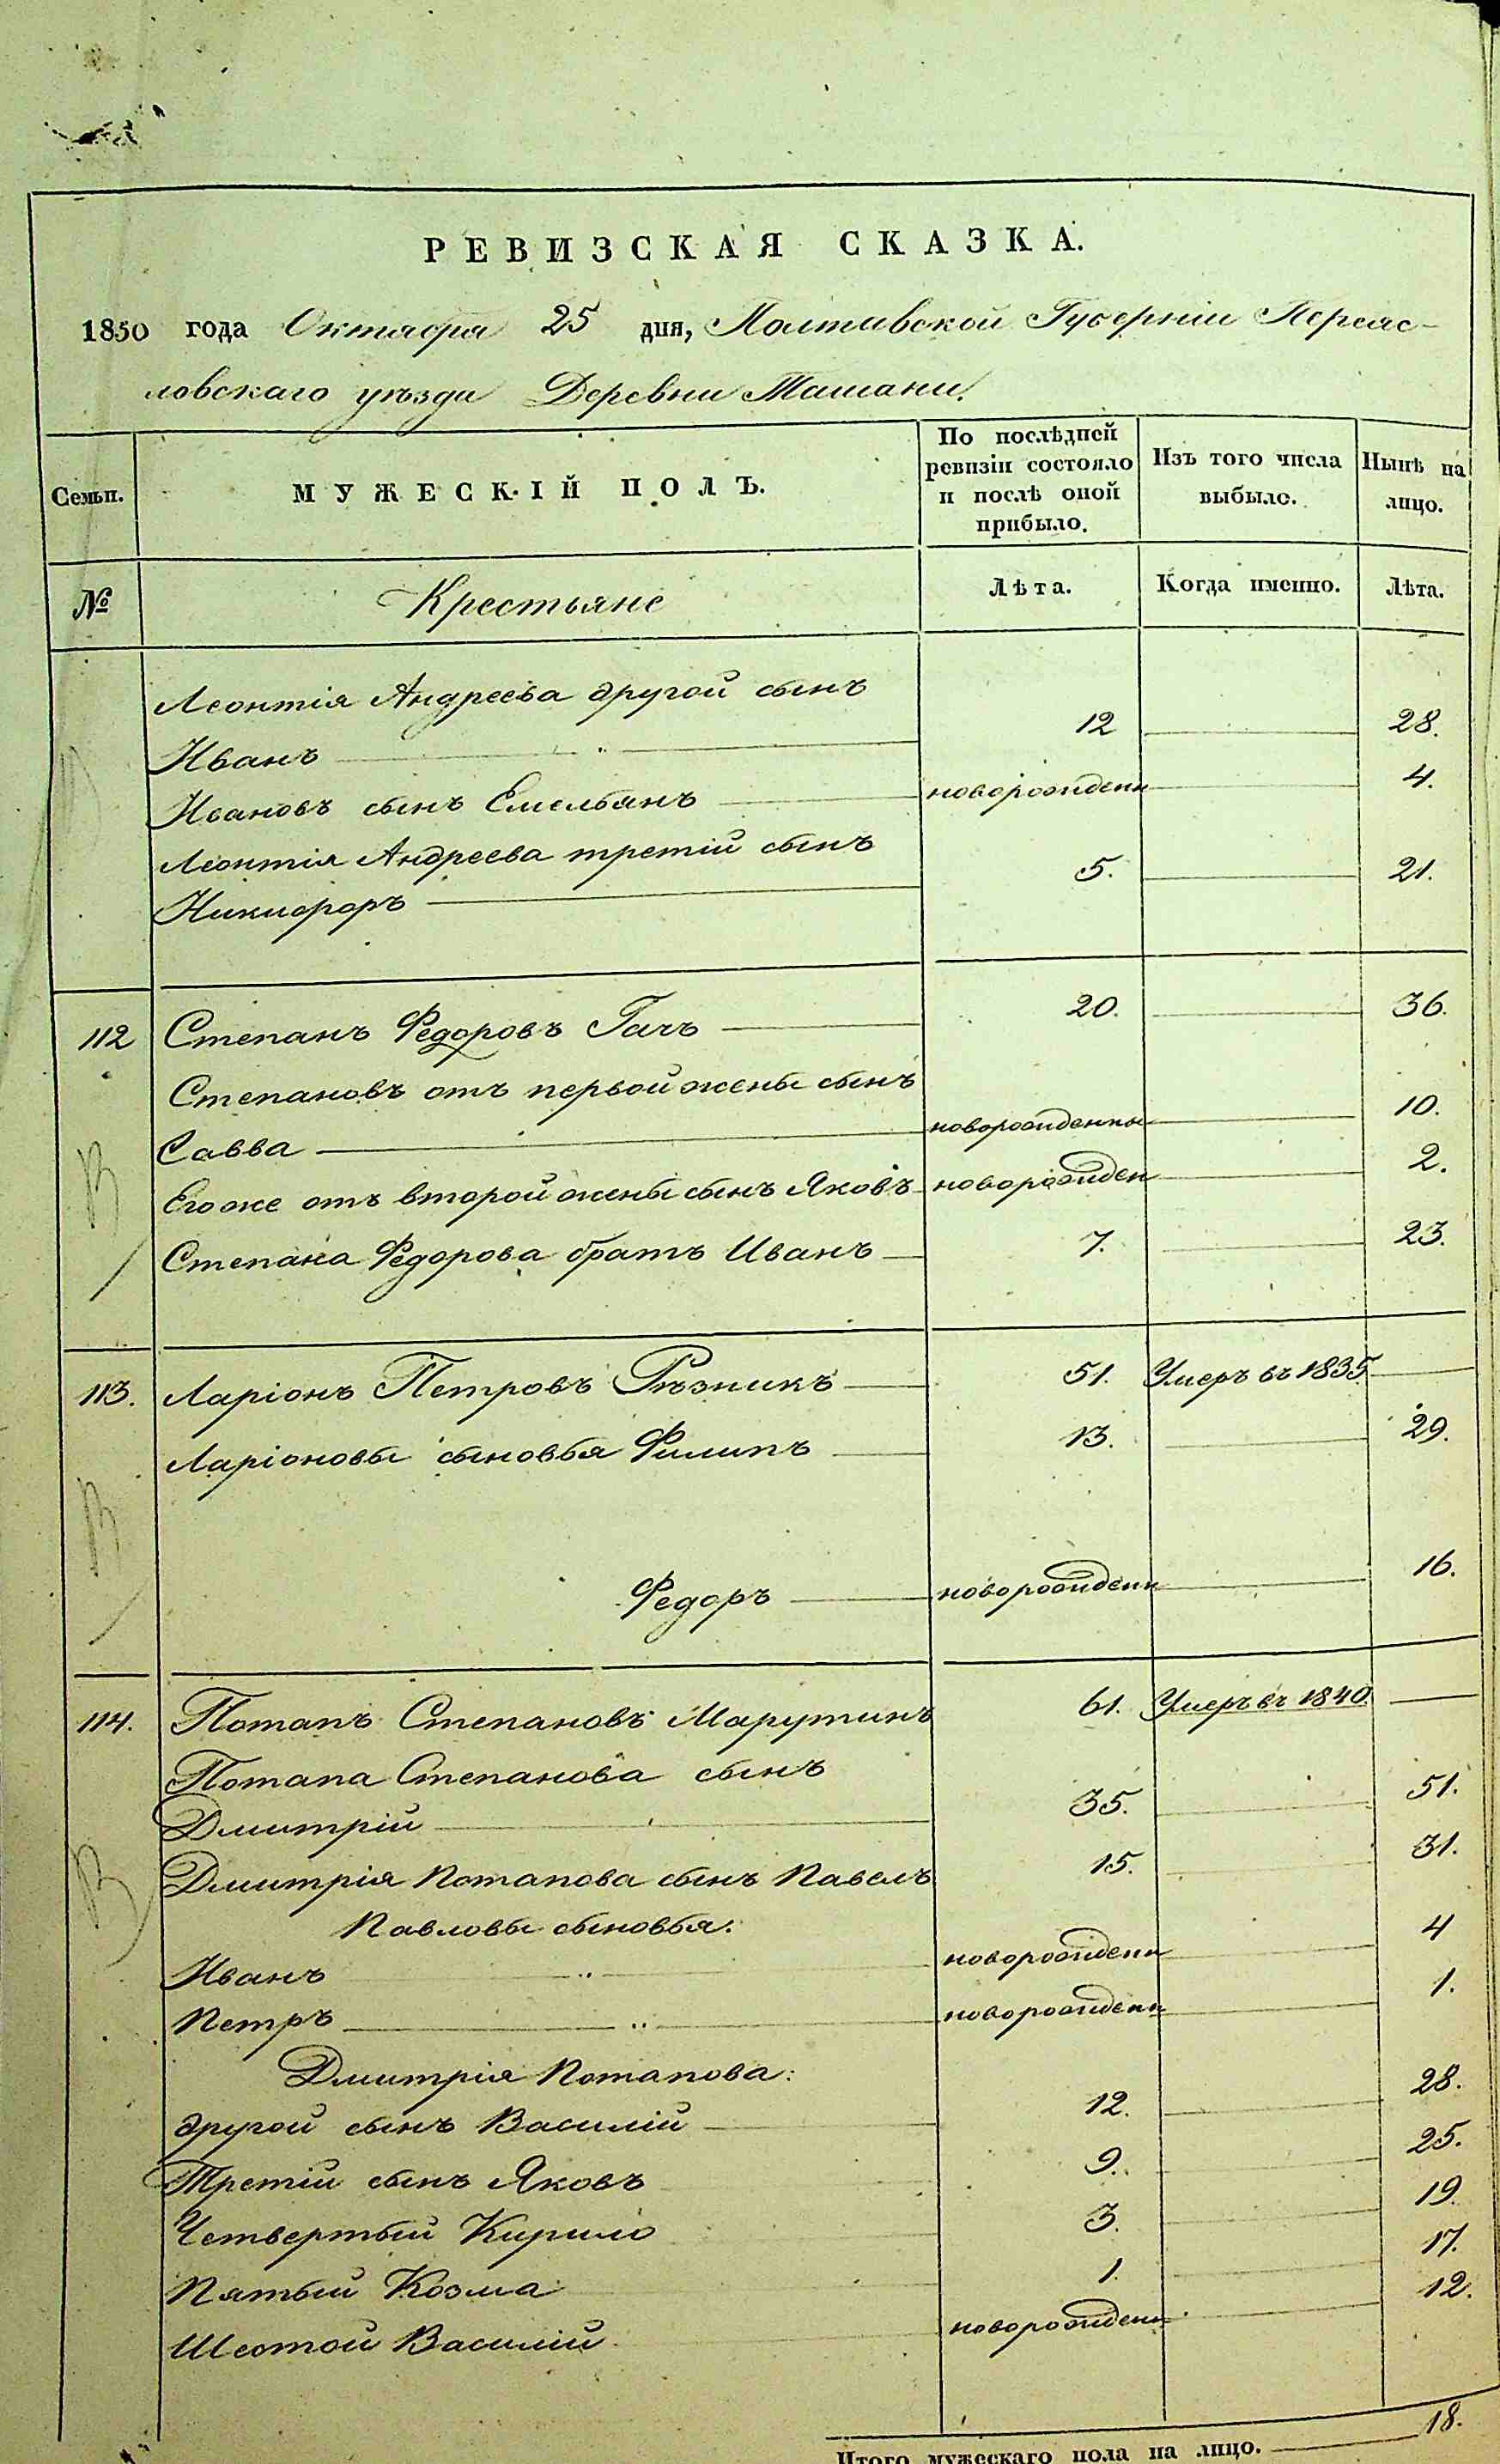 РЕВИЗСКАЯ СКАЗКА.
1850 года Октября 25 дня, Полтавской Губерніи Переяс-
ловскаго уѣзда Деревни Ташани.
Семьи. МУЖЕСКІЙ ПОЛЪ. По послѣдней ревизіи состояло и послѣ оной прибыло. Изъ того числа выбыло. Нынѣ на лицо.
№ Крестьяне Лѣта. Когда именно. Лѣта.
Леонтія Андреева другой сынъ
Иванъ 12 28.
Ивановъ сынъ Емельянъ новорожденн 4.
Леонтія Андреева третій сынъ
Никифоръ 5. 21.
112 Степанъ Федоровъ Гачъ 20. 36.
Степановъ отъ первой жены сынъ
Савва новорожденны 10.
Его же отъ второй жены сынъ Яковъ новорожден 2.
Степана Федорова братъ Иванъ 7. 23.
113. Ларіонъ Петровъ Рѣзникъ 51. Умеръ въ 1835
Ларіоновы сыновья Филипъ 13. 29.
Федоръ новорожденн 16.
114. Потапъ Степановъ Марутинъ 61. Умеръ въ 1840
Потапа Степанова сынъ
Дмитрій 35. 51.
Дмитрія Потапова сынъ Павелъ 15. 31.
Павловы сыновья:
Иванъ новорожденн 4
Петръ новорожденн 1.
Дмитрія Потапова:
другой сынъ Василій 12. 28.
Третій сынъ Яковъ 9. 25.
Четвертый Кирило 3. 19.
Пятый Козма 1. 17.
Шестой Василій новорожденн 12.
Итого мужескаго пола на лицо. 18.